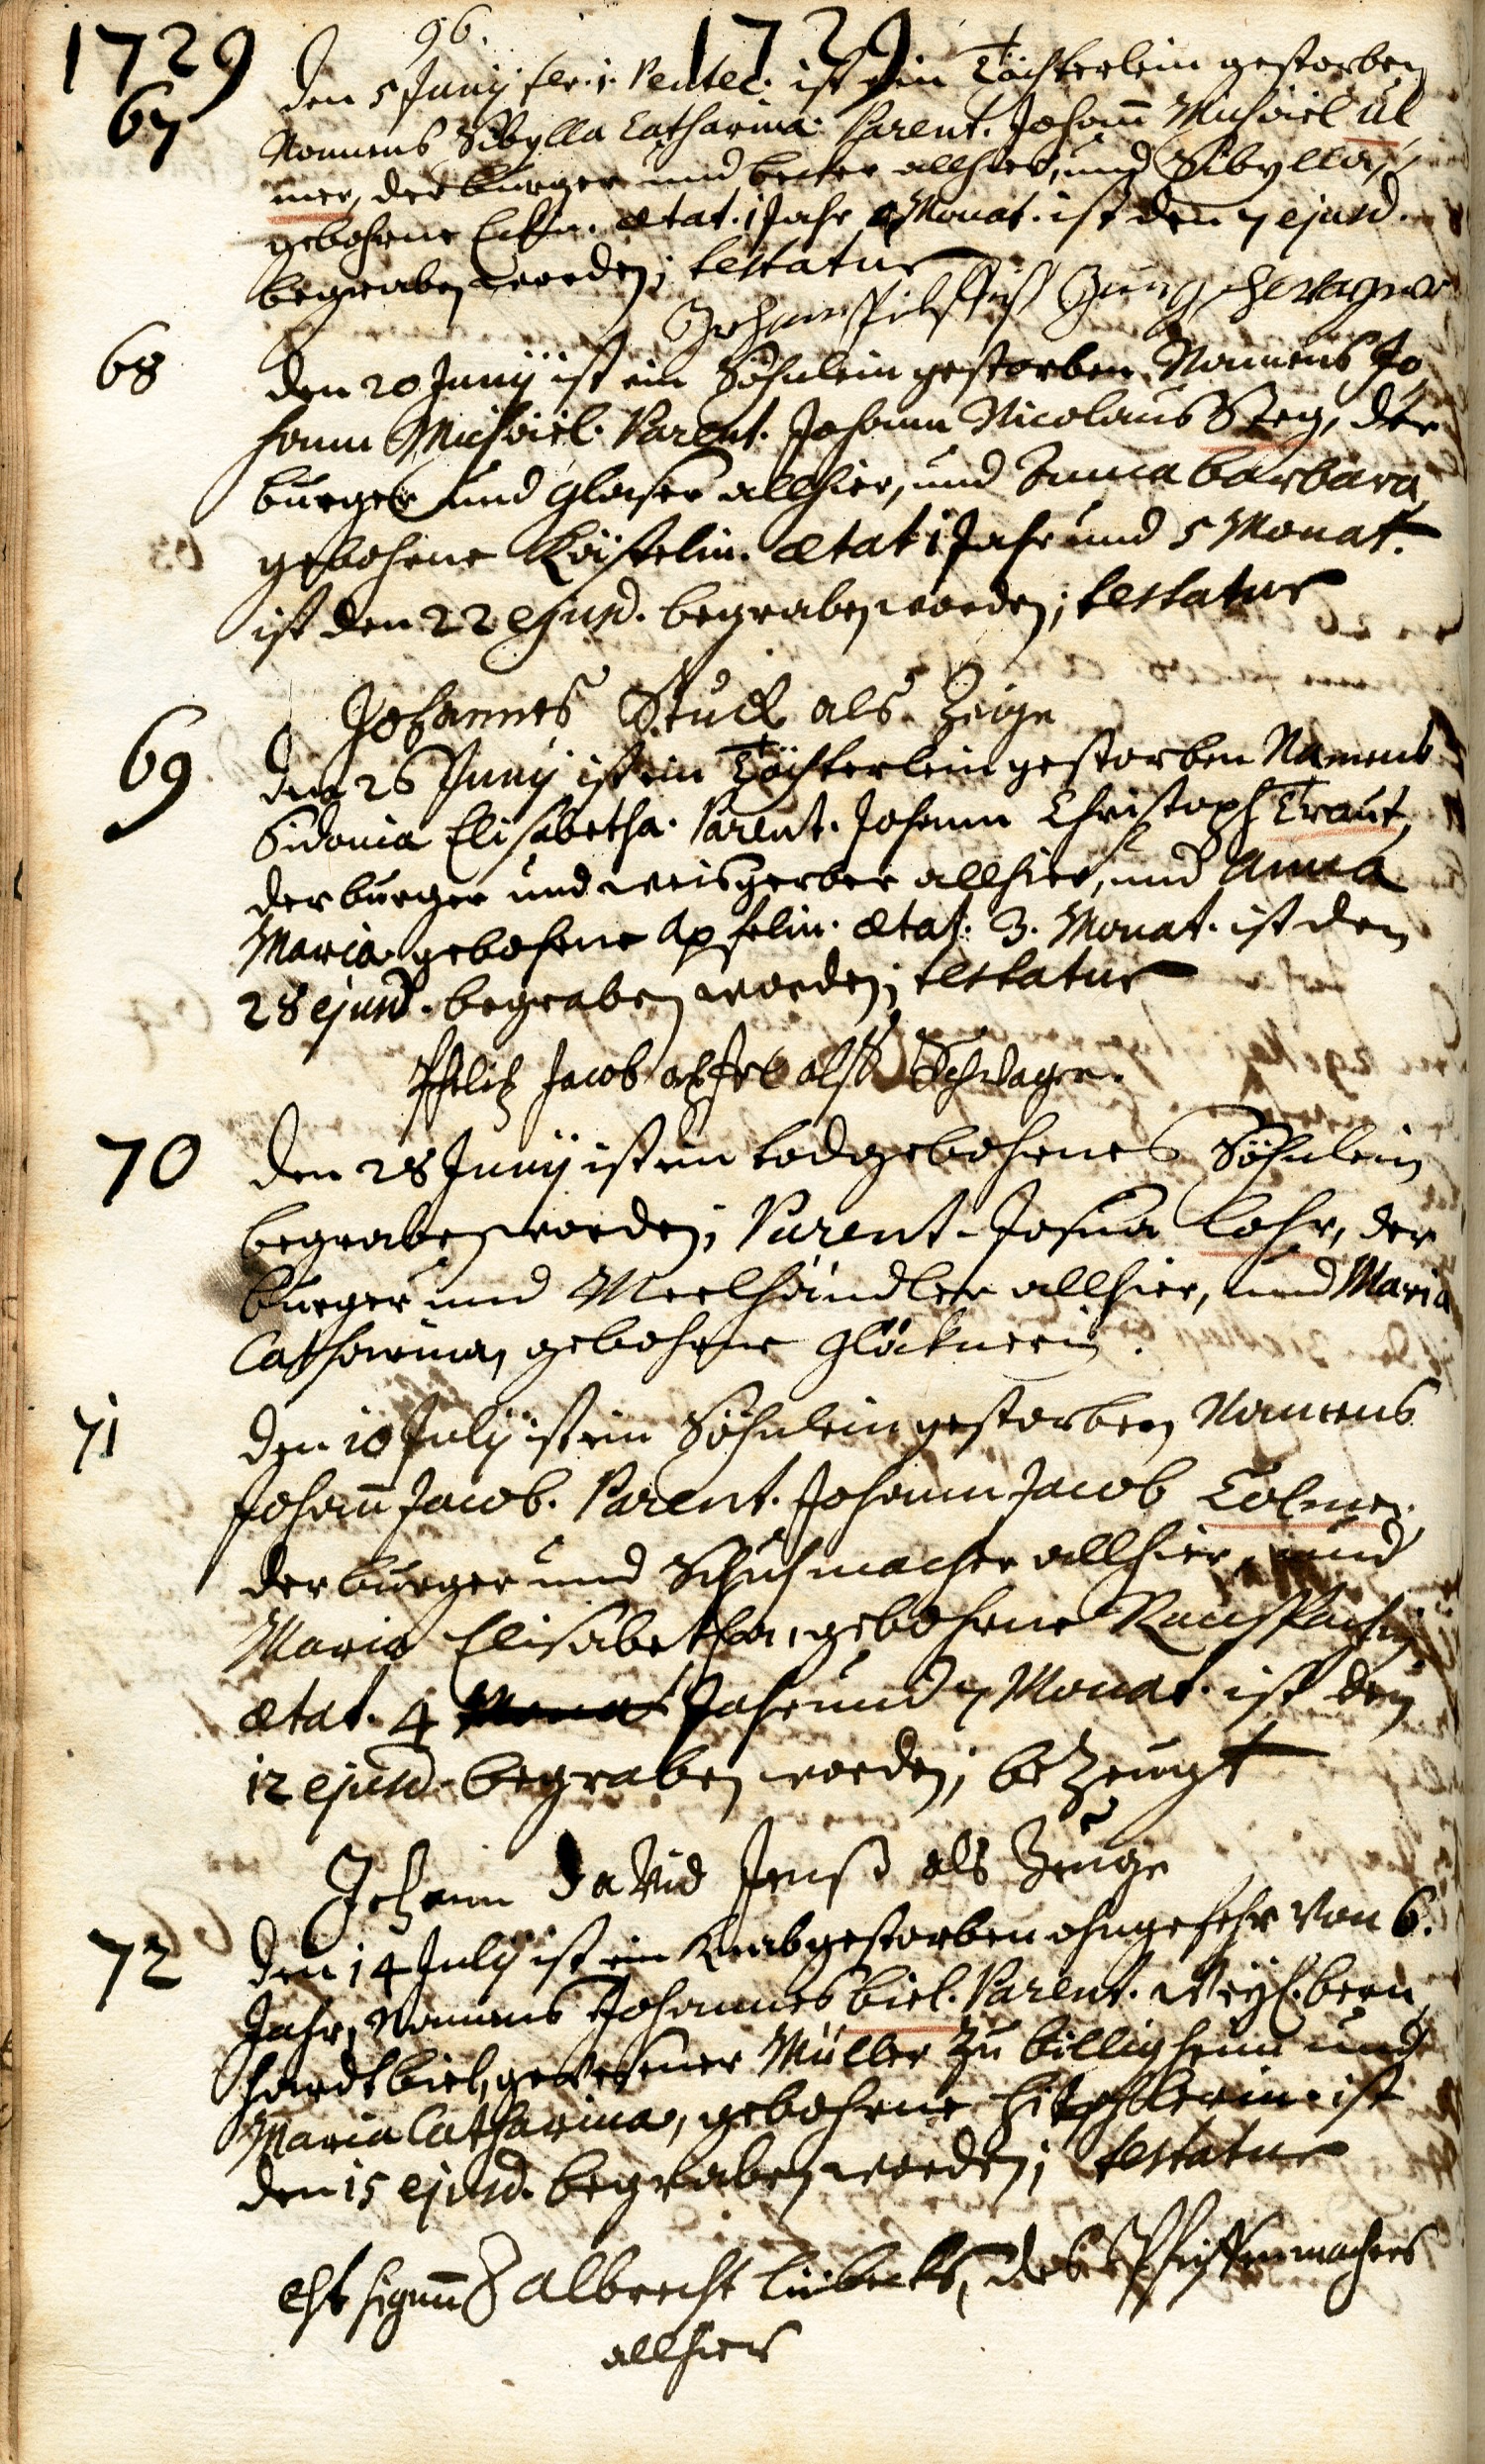 1729 96. 1729
67 den 5 Junij fer. 1. Pentec. ist ein Töchterlein gestorben
Namens Sibylla Catharina. Parent. Johann Michäel Ul
mer, der burger und becker allhier, und Sibylla,
gebohrne. ætat. 1 Jahr Monat. ist den 7 ejusd.
begraben worden; testatur
68 den 20 Junij ist ein Söhnlein gestorben, Namens Jo
hann Michäel. Parent. Johann Nicolaus Steg, der
burger und glaser allhier, und Anna barbara,
gebohrne. ætat 1 Jahr und 5 Monat.
ist den 22 ejusd. begraben worden; testatur
Johannes Stuck als Zeige
69 den 26 Junij ist ein Töchterlein gestorben Namens
Sidonia Elisabetha. Parent. Johann Christoph Traut,
der burger und weisgerber allhier, und Anna
Maria gebohrne Apfelin. ætat. 3. Monat. ist den
28 ejusd. begraben worden; testatur
Jacob apfel alß Schwager.
70 den 28 Junij ist ein todgebohrnes Söhnlein
begraben worden; Parent. Josua Lohr, der
burger und Meelhändler allhier, und Maria
Catharina, gebohrne Glöcknerin.
71 den 10 Julij ist ein Söhnlein gestorben Namens
Johann Jacob. Parent. Johann Jacob
der burger und Schuhmacher allhier, und
Maria Elisabetha, gebohrne
ætat. 4 Jahr und 7 Monat. ist den
12 ejusd. begraben worden; bezeugt
Johann David als Zeuge
72 den 14 Julij ist ein Knab gestorben ohngefehr von 6.
Jahr, Namens Johannes biel. Parent. Weyl. bern
hardt biel, gewesener Müller zu billigheim und
Maria Catharina, gebohrne. ist
den 15 ejusd. begraben worden; testatur
albrecht, des
allhier